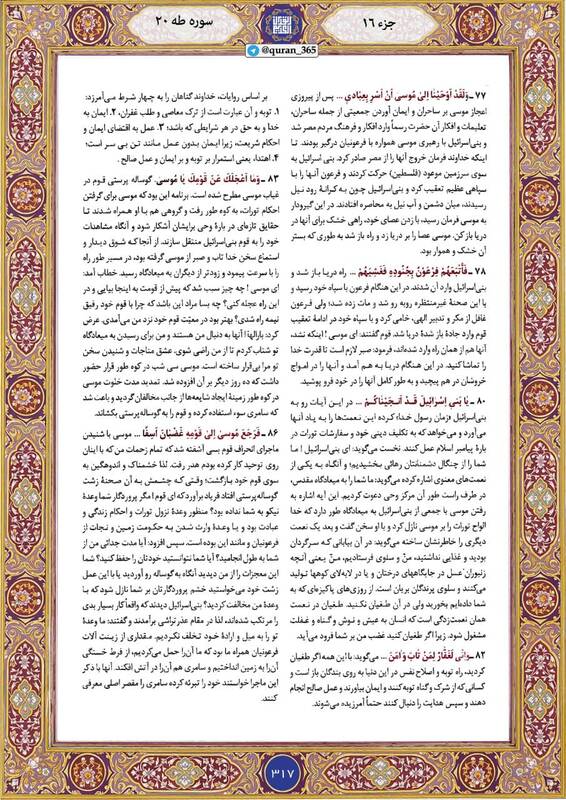 جزء ۱۶
سوره طه ۲۰
@quran_365
۷۷ ـ وَلَقَدْ أَوْحَيْنَا إِلَىٰ مُوسَىٰ أَنْ أَسْرِ بِعِبَادِي ... پس از پیروزی
اعجاز موسی بر ساحران و ایمان آوردن جمعیتی از جمله ساحران،
تعلیمات و افکار آن حضرت رسماً وارد افکار و فرهنگ مردم مصر شد
و بنی‌اسرائیل با رهبری موسی همواره با فرعونیان درگیر بودند. تا
اینکه خداوند فرمان خروج آنها را از مصر صادر کرد. بنی اسرائیل به
سوی سرزمین موعود (فلسطین) حرکت کردند و فرعون آنها را با
سپاهی عظیم تعقیب کرد و بنی‌اسرائیل چون به کرانهٔ رود نیل
رسیدند، میان دشمن و آب نیل به محاصره افتادند. در این گیرودار
به موسی فرمان رسید، با زدن عصای خود، راهی خشک برای آنها در
دریا باز کن. موسی عصا را بر دریا زد و راه باز شد به طوری که بستر
آن خشک و هموار بود.
۷۸ ـ فَأَتْبَعَهُمْ فِرْعَوْنُ بِجُنُودِهِ فَغَشِيَهُمْ ... راه دریا باز شد و
بنی‌اسرائیل وارد آن شدند. در این هنگام فرعون با سپاه خود رسید و
با این صحنهٔ غیرمنتظره روبه رو شد و مات زده شد؛ ولی فرعون
غافل از مکر و تدبیر الهی، خامی کرد و با سپاه خود در ادامهٔ تعقیب
قوم وارد جادهٔ باز شدهٔ دریا شد. قوم گفتند: ای موسی! اینکه نشد،
آنها هم از همان راه وارد شده‌اند، فرمود: صبر لازم است تا قدرت خدا
را تماشا کنید. در این هنگام دریا به هم آمد و آنها را در امواج
خروشان در هم پیچید و به طور کامل آنها را در خود فرو پوشید.
۸۰ ـ يَا بَنِي إِسْرَائِيلَ قَدْ أَنْجَيْنَاكُمْ ... در این آیات رو به
بنی‌اسرائیل زمان رسول خدا کرده این نعمت‌ها را به یاد آنها
می‌آورد و می‌خواهد که به تکلیف دینی خود و سفارشات تورات در
بارهٔ پیامبر اسلام عمل کنند. نخست می‌گوید: ای بنی‌اسرائیل! ما
شما را از چنگال دشمنانتان رهائی بخشیدیم؛ و آنگاه به یکی از
نعمت‌های معنوی اشاره کرده می‌گوید: ما شما را به میعادگاه مقدس،
در طرف راست طور آن مرکز وحی دعوت کردیم. این آیه اشاره به
رفتن موسی با جمعی از بنی‌اسرائیل به میعادگاه طور دارد که خدا
الواح تورات را بر موسی نازل کرد و با او سخن گفت و بعد یک نعمت
دیگری را خاطرنشان ساخته می‌گوید: در آن بیابانی که سرگردان
بودید و غذایی نداشتید، منّ و سلوی فرستادیم، منّ یعنی آنچه
زنبوران عسل در جایگاههای درختان و یا در لابه‌لای کوهها تولید
می‌کنند و سلوی پرندگان بریان است. از روزی‌های پاکیزه‌ای که به
شما داده‌ایم بخورید ولی در آن طغیان نکنید. طغیان در نعمت
همان نعمت‌زدگی است که انسان به عیش و نوش و گناه و غفلت
مشغول شود. زیرا اگر طغیان کنید غضب من بر شما فرود می‌آید.
۸۲ ـ وَإِنِّي لَغَفَّارٌ لِمَنْ تَابَ وَآمَنَ ... می‌گوید: با این همه اگر طغیان
کردید، راه توبه و اصلاح نفس در این دنیا به روی بندگان باز است و
کسانی که از شرک و گناه توبه کنند و ایمان بیاورند و عمل صالح انجام
دهند و سپس هدایت را دنبال کنند حتماً آمرزیده می‌شوند.
بر اساس روایات، خداوند گناهان را به چهار شرط می‌آمرزد:
۱. توبه و آن عبارت است از ترک معاصی و طلب غفران، ۲. ایمان به
خدا و به حق در هر شرایطی که باشد؛ ۳. عمل به اقتضای ایمان و
احکام شریعت، زیرا ایمان بدون عمل مانند تن بی سر است؛
۴. اهتدا، یعنی استمرار بر توبه و بر ایمان و عمل صالح.
۸۳ ـ وَمَا أَعْجَلَكَ عَنْ قَوْمِكَ يَا مُوسَىٰ. گوساله پرستی قوم در
غیاب موسی مطرح شده است. برنامه این بود که موسی برای گرفتن
احکام تورات، به کوه طور رفت و گروهی هم با او همراه شدند تا
حقایق تازه‌ای در بارهٔ وحی برایشان آشکار شود و آنگاه مشاهدات
خود را به قوم بنی‌اسرائیل منتقل سازند. از آنجا که شوق دیدار و
استماع سخن خدا تاب و صبر از موسی گرفته بود، در مسیر طور راه
را با سرعت پیمود و زودتر از دیگران به میعادگاه رسید. خطاب آمد:
ای موسی! چه چیز سبب شد که پیش از قومت به اینجا بیایی و در
این راه عجله کنی؟ چه بسا مراد این باشد که چرا با قوم خود رفیق
نیمه راه شدی؟ بهتر بود در معیّت قوم خود نزد من می‌آمدی. عرض
کرد: بارالها! آنها به دنبال من هستند و من برای رسیدن به میعادگاه
تو شتاب کردم تا از من راضی شوی. عشق مناجات و شنیدن سخن
تو مرا بی‌قرار ساخته است. موسی سی شب در کوه طور قرار حضور
داشت که ده روز دیگر بر آن افزوده شد. تمدید مدت خلوت موسی
در کوه طور زمینهٔ ایجاد شایعه‌ها از جانب مخالفان گردید و باعث شد
که سامری سوء استفاده کرده و قوم را به گوساله‌پرستی بکشاند.
۸۶ ـ فَرَجَعَ مُوسَىٰ إِلَىٰ قَوْمِهِ غَضْبَانَ أَسِفًا ... موسی با شنیدن
ماجرای انحراف قوم بسی آشفته شد که تمام زحمات من که با اینان
روی توحید کار کرده بودم هدر رفت. لذا خشمناک و اندوهگین به
سوی قوم خود بازگشت؛ وقتی که چشمش به آن صحنهٔ زشت
گوساله‌پرستی افتاد فریاد برآورد که ای قوم! مگر پروردگار شما وعدهٔ
نیکو به شما نداده بود؟ منظور وعدهٔ نزول تورات و احکام زندگی و
عبادت بود و یا وعدهٔ وارث شدن به حکومت زمین و نجات از
فرعونیان و مانند این بوده است. سپس افزود: آیا مدت جدائی من از
شما به طول انجامید؟ آیا شما نتوانستید خودتان را حفظ کنید؟ شما
این معجزات را از من دیدید آنگاه به گوساله رو آوردید یا با این عمل
زشت خود می‌خواستید خشم پروردگارتان بر شما نازل شود که با
وعدهٔ من مخالفت کردید؟ بنی‌اسرائیل دیدند که واقعاً کار بسیار بدی
را مرتکب شده‌اند، لذا در مقام عذرتراشی برآمدند و گفتند: ما وعدهٔ
تو را به میل و ارادهٔ خود تخلف نکردیم. مقداری از زینت آلات
فرعونیان همراه ما بود که ما آن را حمل می‌کردیم، از فرط خستگی
آن را به زمین انداختیم و سامری هم آن را در آتش افکند. آنها با ذکر
این ماجرا خواستند خود را تبرئه کرده سامری را مقصر اصلی معرفی
کنند.
۳۱۷